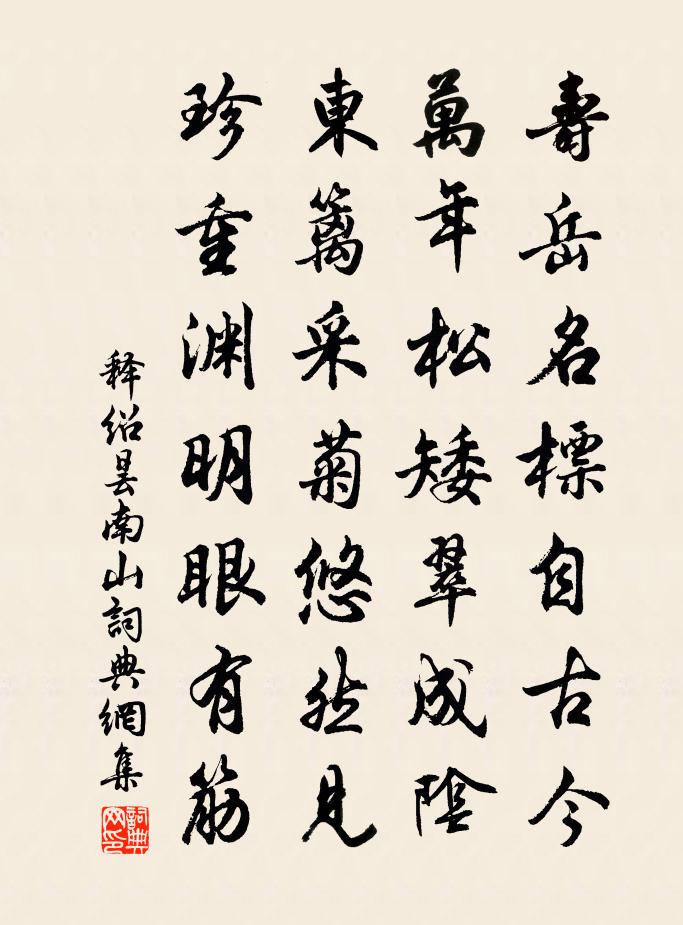 壽岳名標自古今
萬年松矮翠成陰
東籬采菊悠然見
珍重淵明眼有筋
释紹曇南山詞典網集
詞典網印